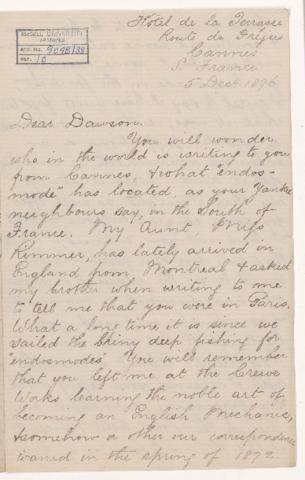 McGILL UNIVERSITY
ARCHIVES
ACC. NO. 909B/38
REF. 10
Hôtel de la Terrasse
Route de Fréjus
Cannes
S. France
5 Dec. 1896
Dear Dawson,
You will wonder
who in the world is writing to you
from Cannes, & what "endos-
mode" has located, as your Yankee
neighbours say, in the South of
France. My Aunt, Miss
Rimmer, has lately arrived in
England from Montreal & asked
my brother when writing to me
to tell me that you were in Paris.
What a long time it is since we
sailed the briny deep fishing for
"endosmodes" You will remember
that you left me at the Crewe
Works learning the noble art of
becoming an English Mechanic,
& somehow or other our correspondence
waned in the spring of 1872.